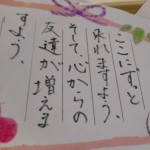 ここにずっと
来れますよう。
そして、心からの
友達が増えま
すよう。